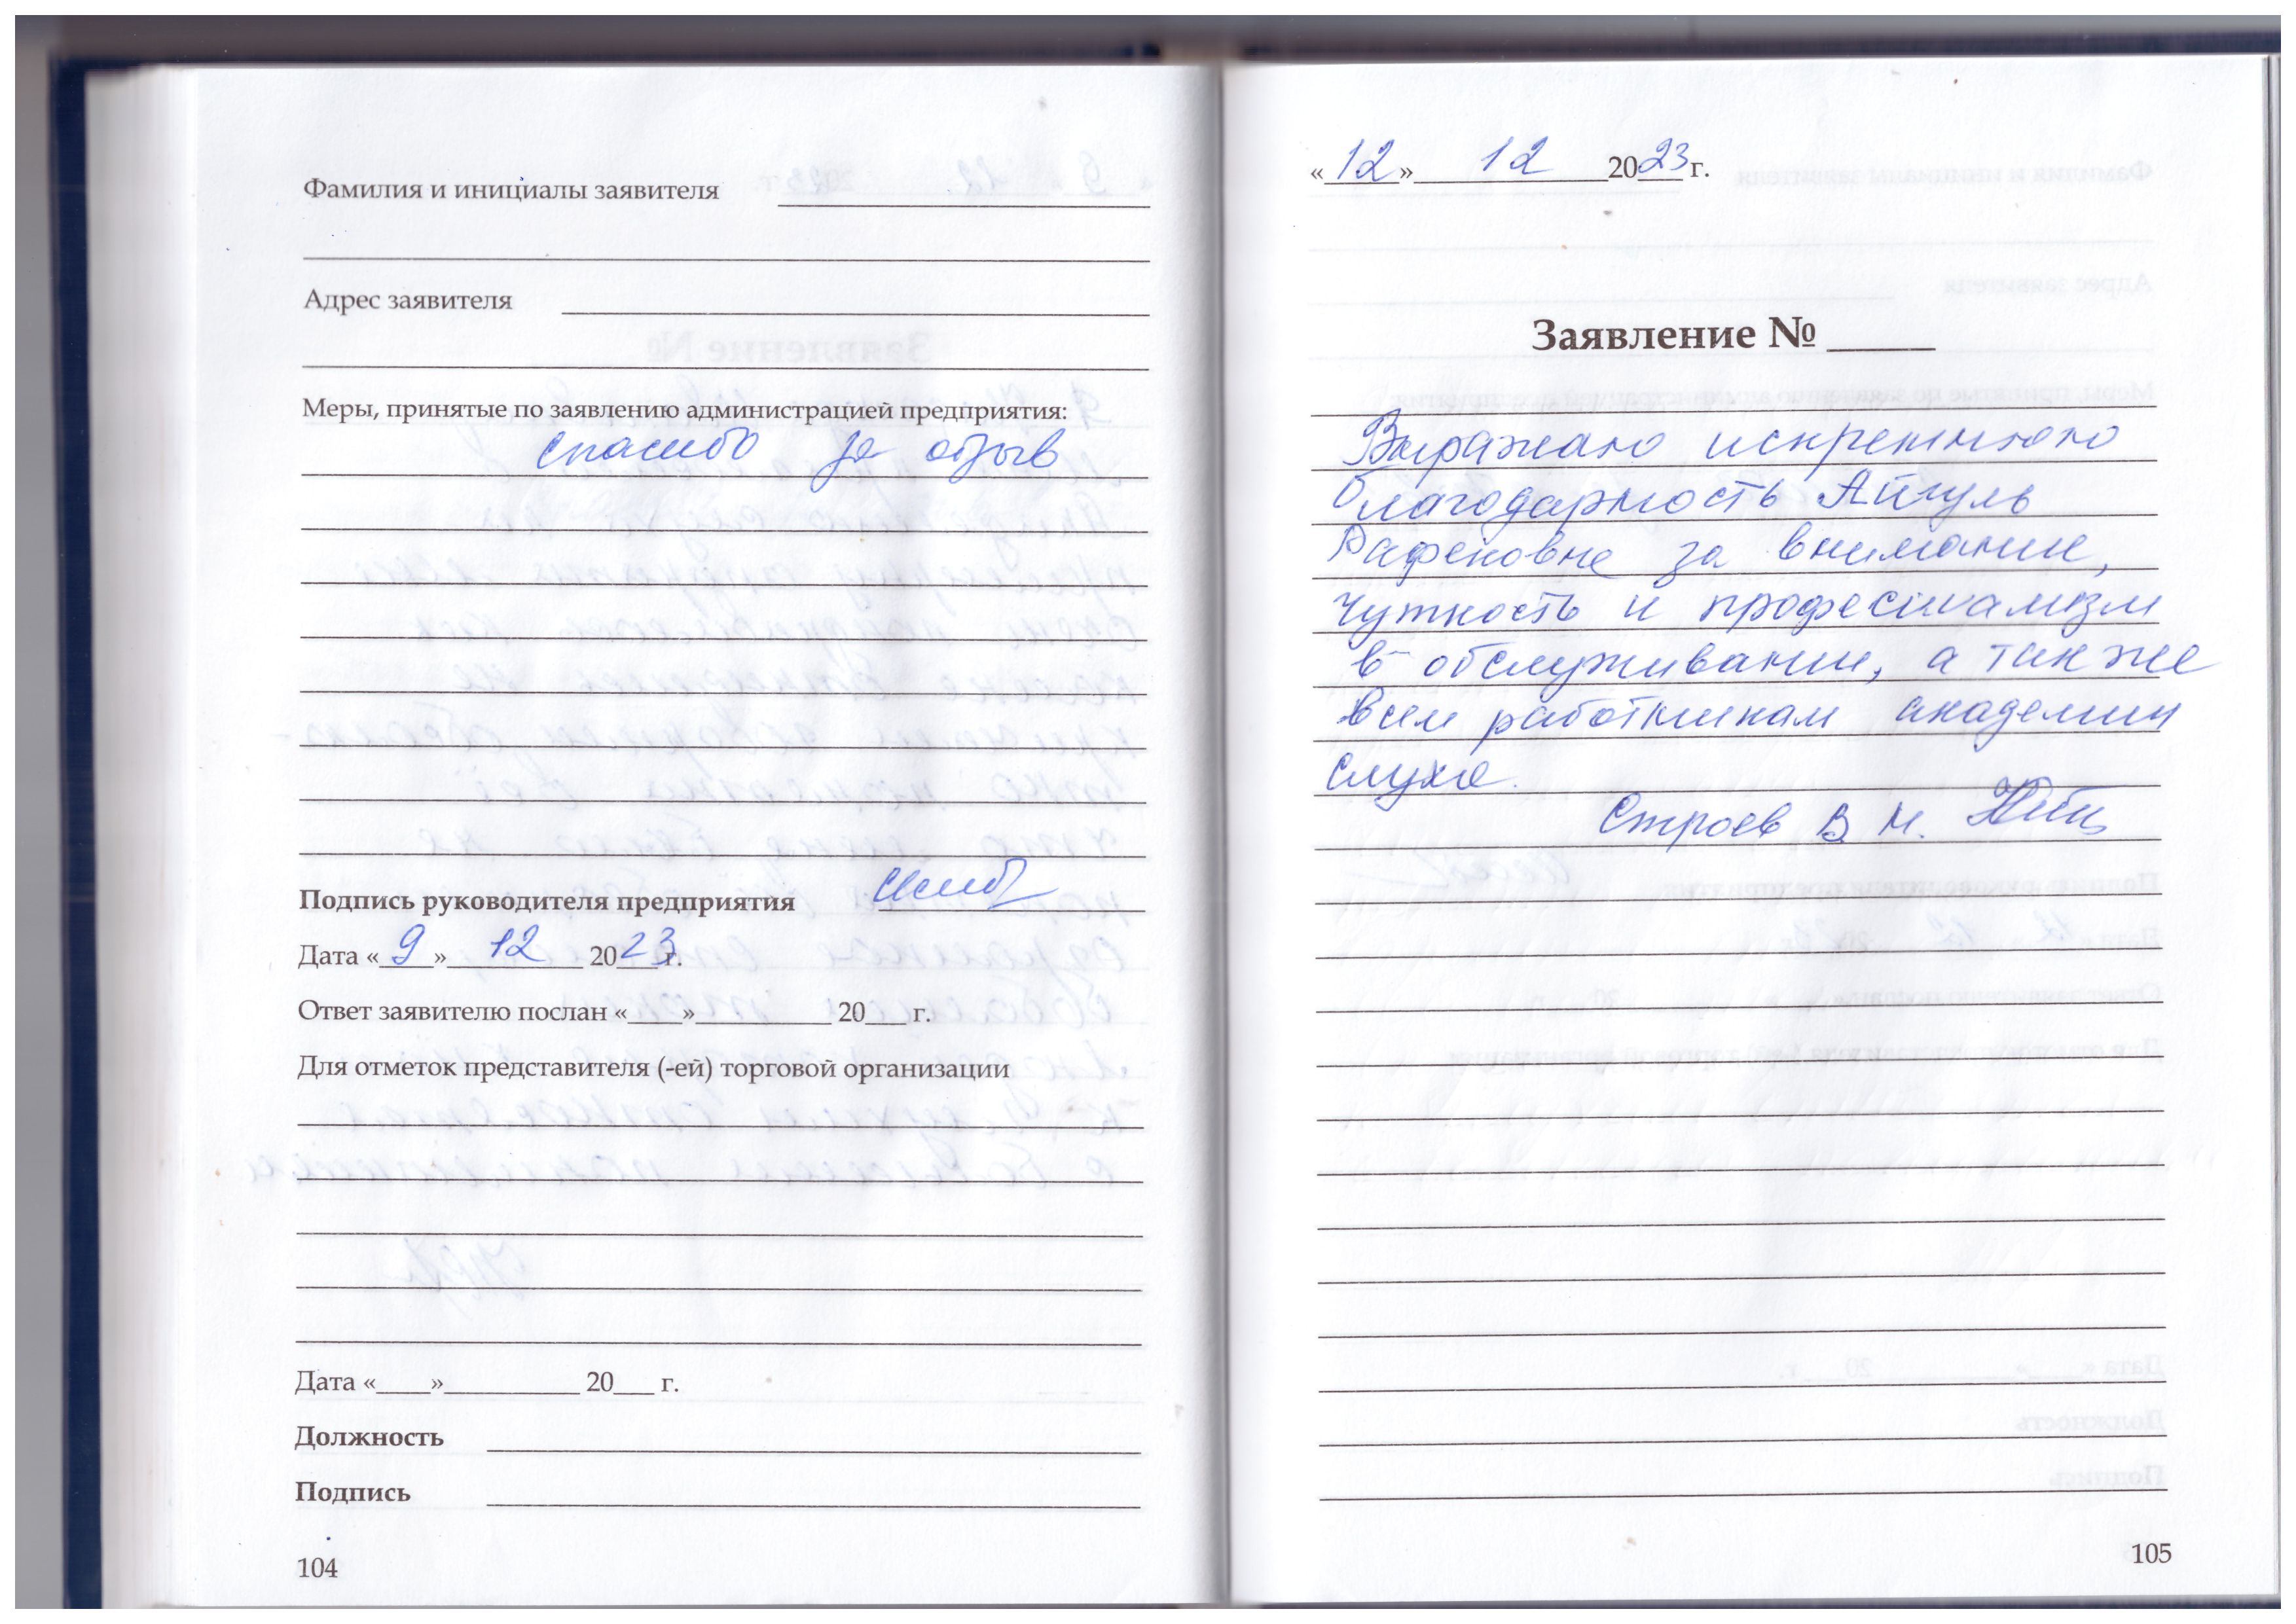 Фамилия и инициалы заявителя
Адрес заявителя
Меры, принятые по заявлению администрацией предприятия:
спасибо за отзыв
Подпись руководителя предприятия
Дата «9» 12 2023 г.
Ответ заявителю послан «____»__________ 20___ г.
Для отметок представителя (-ей) торговой организации
Дата «____»__________ 20___ г.
Должность
Подпись
104
«12» 12 2023 г.
Заявление № _____
Выражаю искреннюю
благодарность Айгуль
за внимание,
чуткость и професианализм
в обслуживании, а так же
всем работникам академии
слуха.
Строев В М.
105